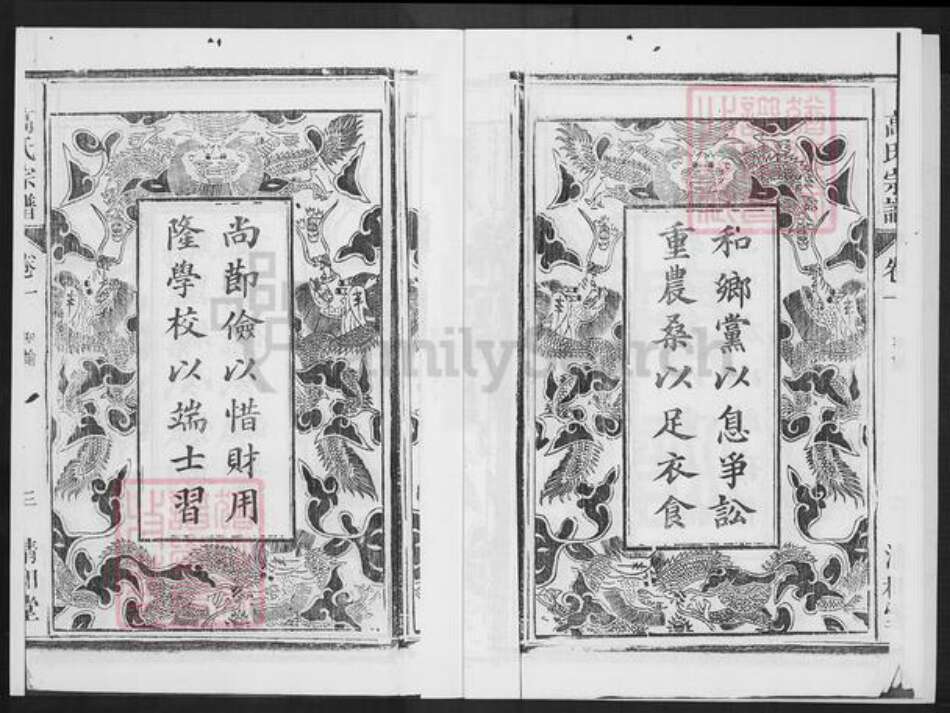 和鄉黨以息爭訟
重農桑以足衣食
尚節儉以惜財用
隆學校以端士習
高氏宗譜
卷一
聖諭
三
清和堂
FamilySearch